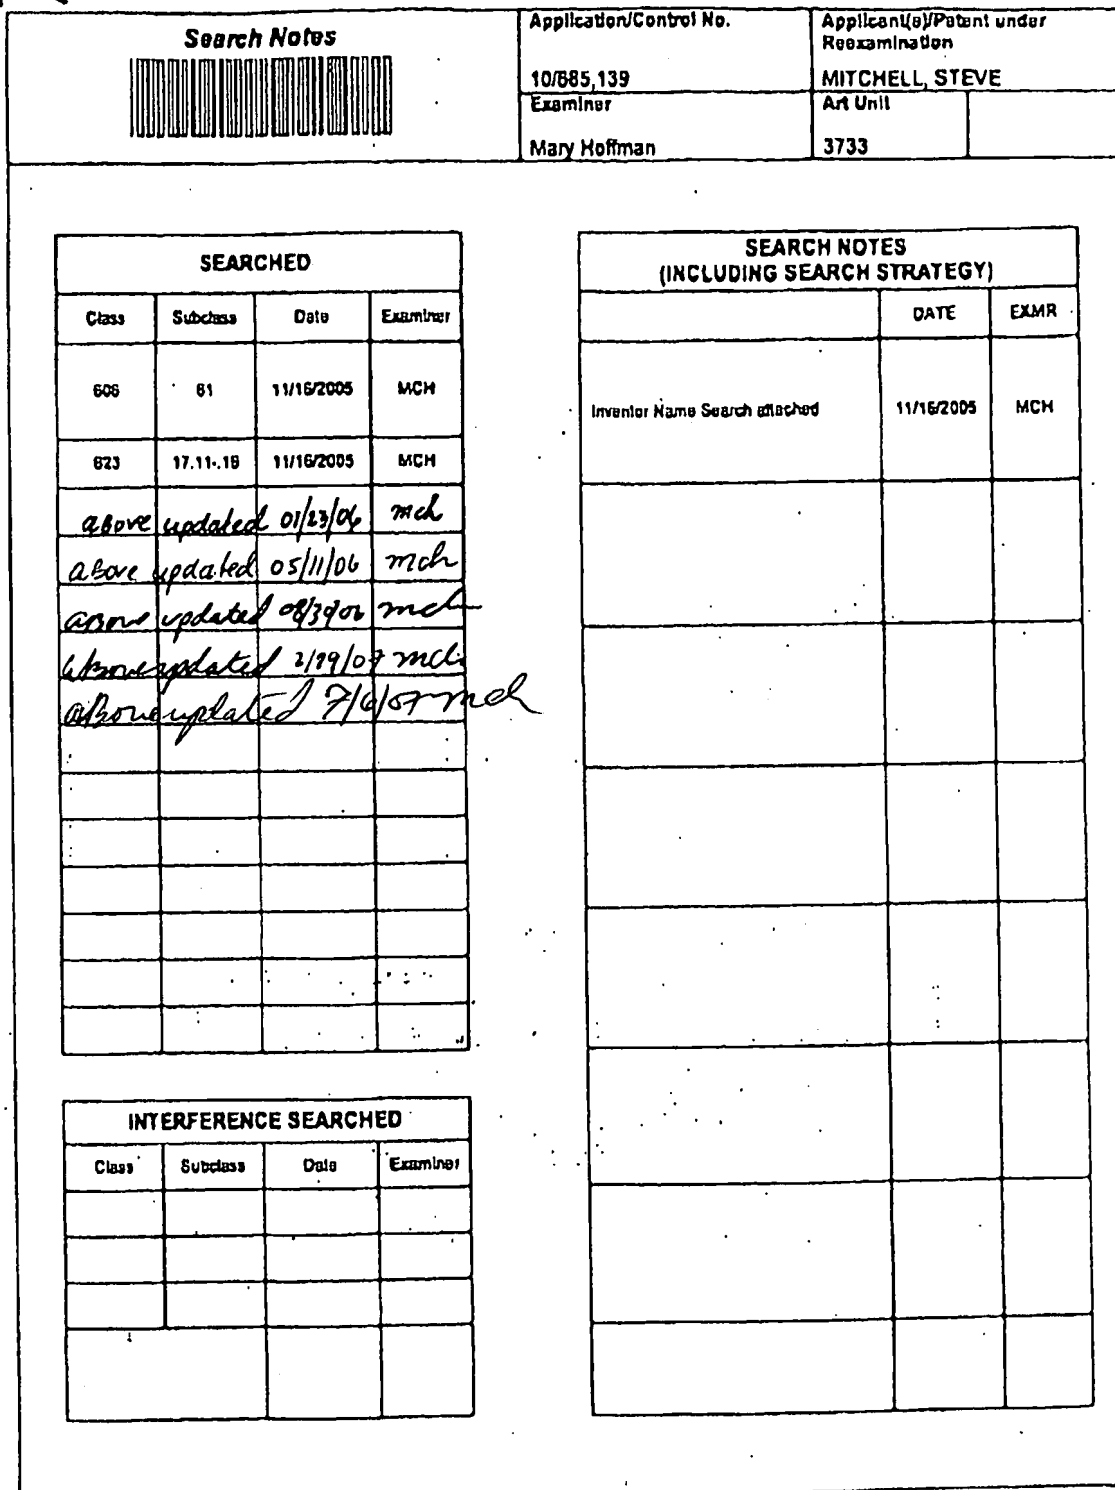 Search Notes
Application/Control No.
10/685,139
Applicant(s)/Patent under
Reexamination
MITCHELL, STEVE
Examiner
Mary Hoffman
Art Unit
3733
SEARCHED
Class Subclass Date Examiner
606 61 11/16/2005 MCH
623 17.11-.16 11/16/2005 MCH
above updated 01/23/06 mch
above updated 05/11/06 mch
above updated mch
above updated mch
above updated 7/6/07 mch
INTERFERENCE SEARCHED
Class Subclass Date Examiner
SEARCH NOTES
(INCLUDING SEARCH STRATEGY)
DATE EXMR
Inventor Name Search attached 11/16/2005 MCH